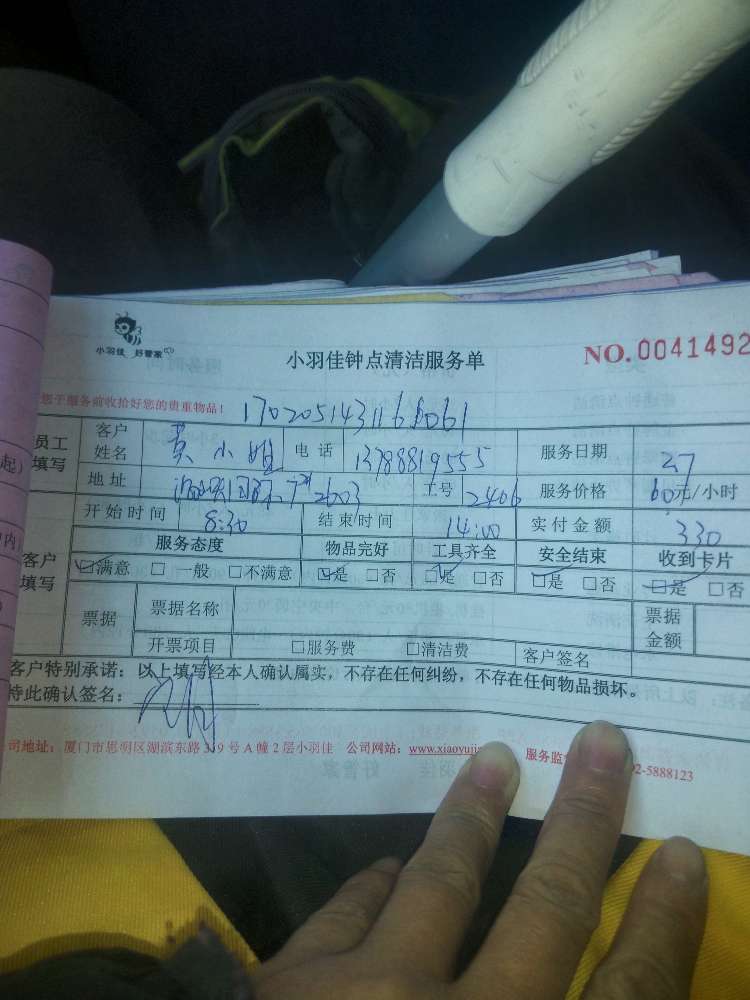 小羽佳 好管家
小羽佳钟点清洁服务单
NO.0041492
您于服务前收拾好您的贵重物品!
员工填写 客户姓名 黄小姐 电话 13788819555 服务日期 27
地址 2603 工号 2406 服务价格 60元/小时
客户填写 开始时间 8:30 结束时间 14:00 实付金额 330
服务态度 物品完好 工具齐全 安全结束 收到卡片
☑满意 □一般 □不满意 ☑是 □否 ☑是 □否 ☑是 □否 ☑是 □否
票据 票据名称 票据金额
开票项目 □服务费 □清洁费 客户签名
客户特别承诺:以上填写经本人确认属实,不存在任何纠纷,不存在任何物品损坏。
特此确认签名:
司地址:厦门市思明区湖滨东路319号A幢2层小羽佳 公司网站:www.xiaoyuji 服务监 92-5888123